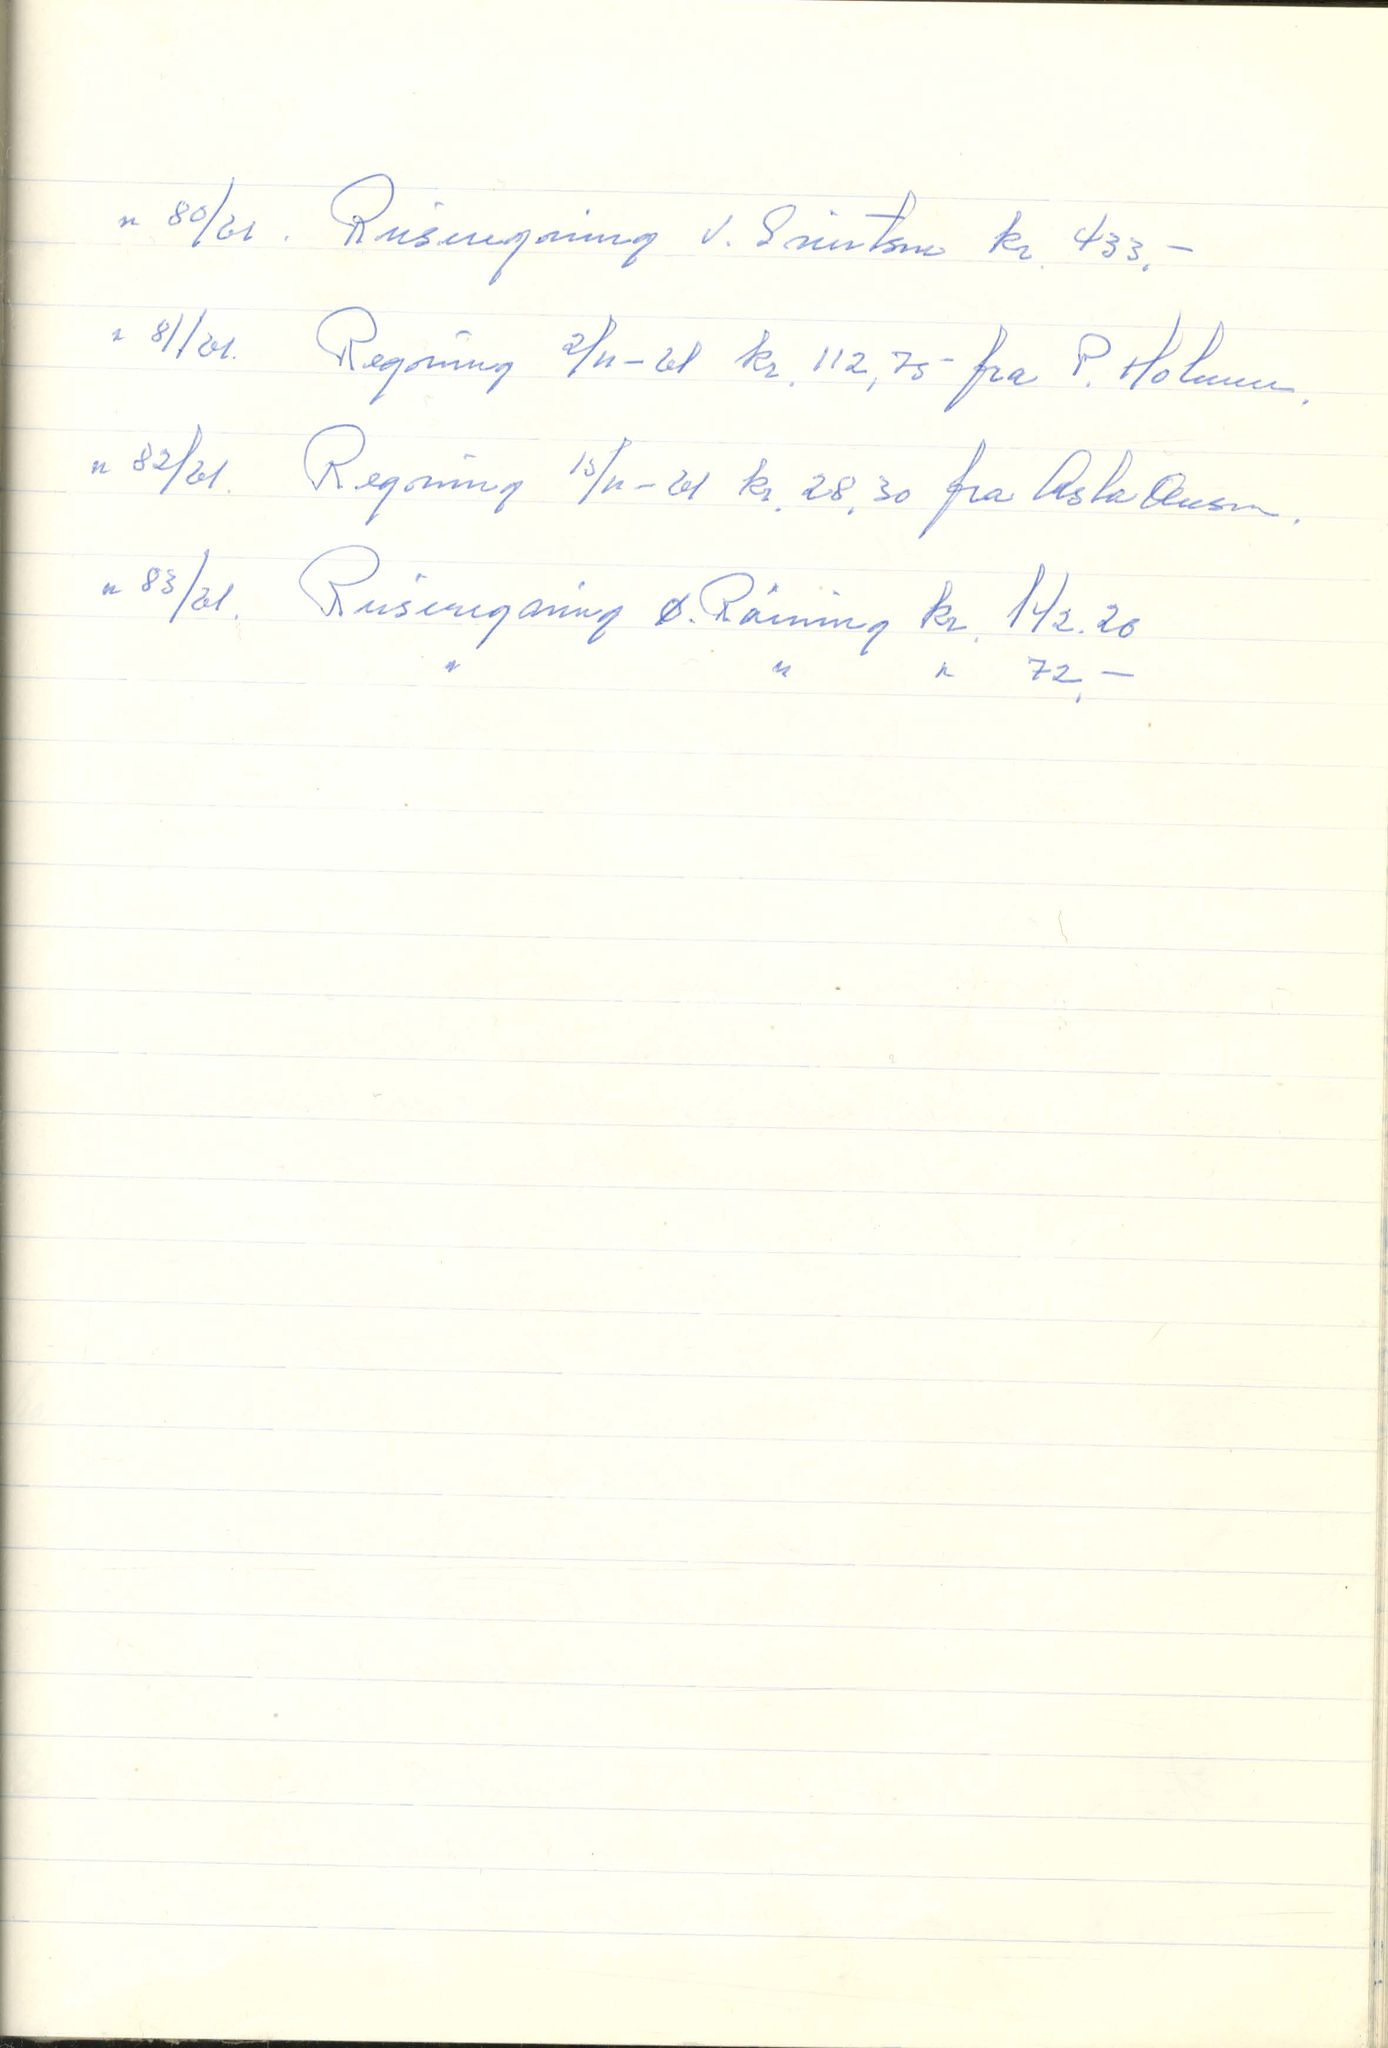 " 80/61. Reiseregning S. Sivertsen kr. 433,-
" 81/61. Regning 2/11-61 kr. 112,75 fra P. Holmen.
" 82/61. Regning 15/11-61 kr. 28,30 fra Asta Olsen.
" 83/61. Reiseregning Ø. Räining kr. 142.20
" " " 72,-